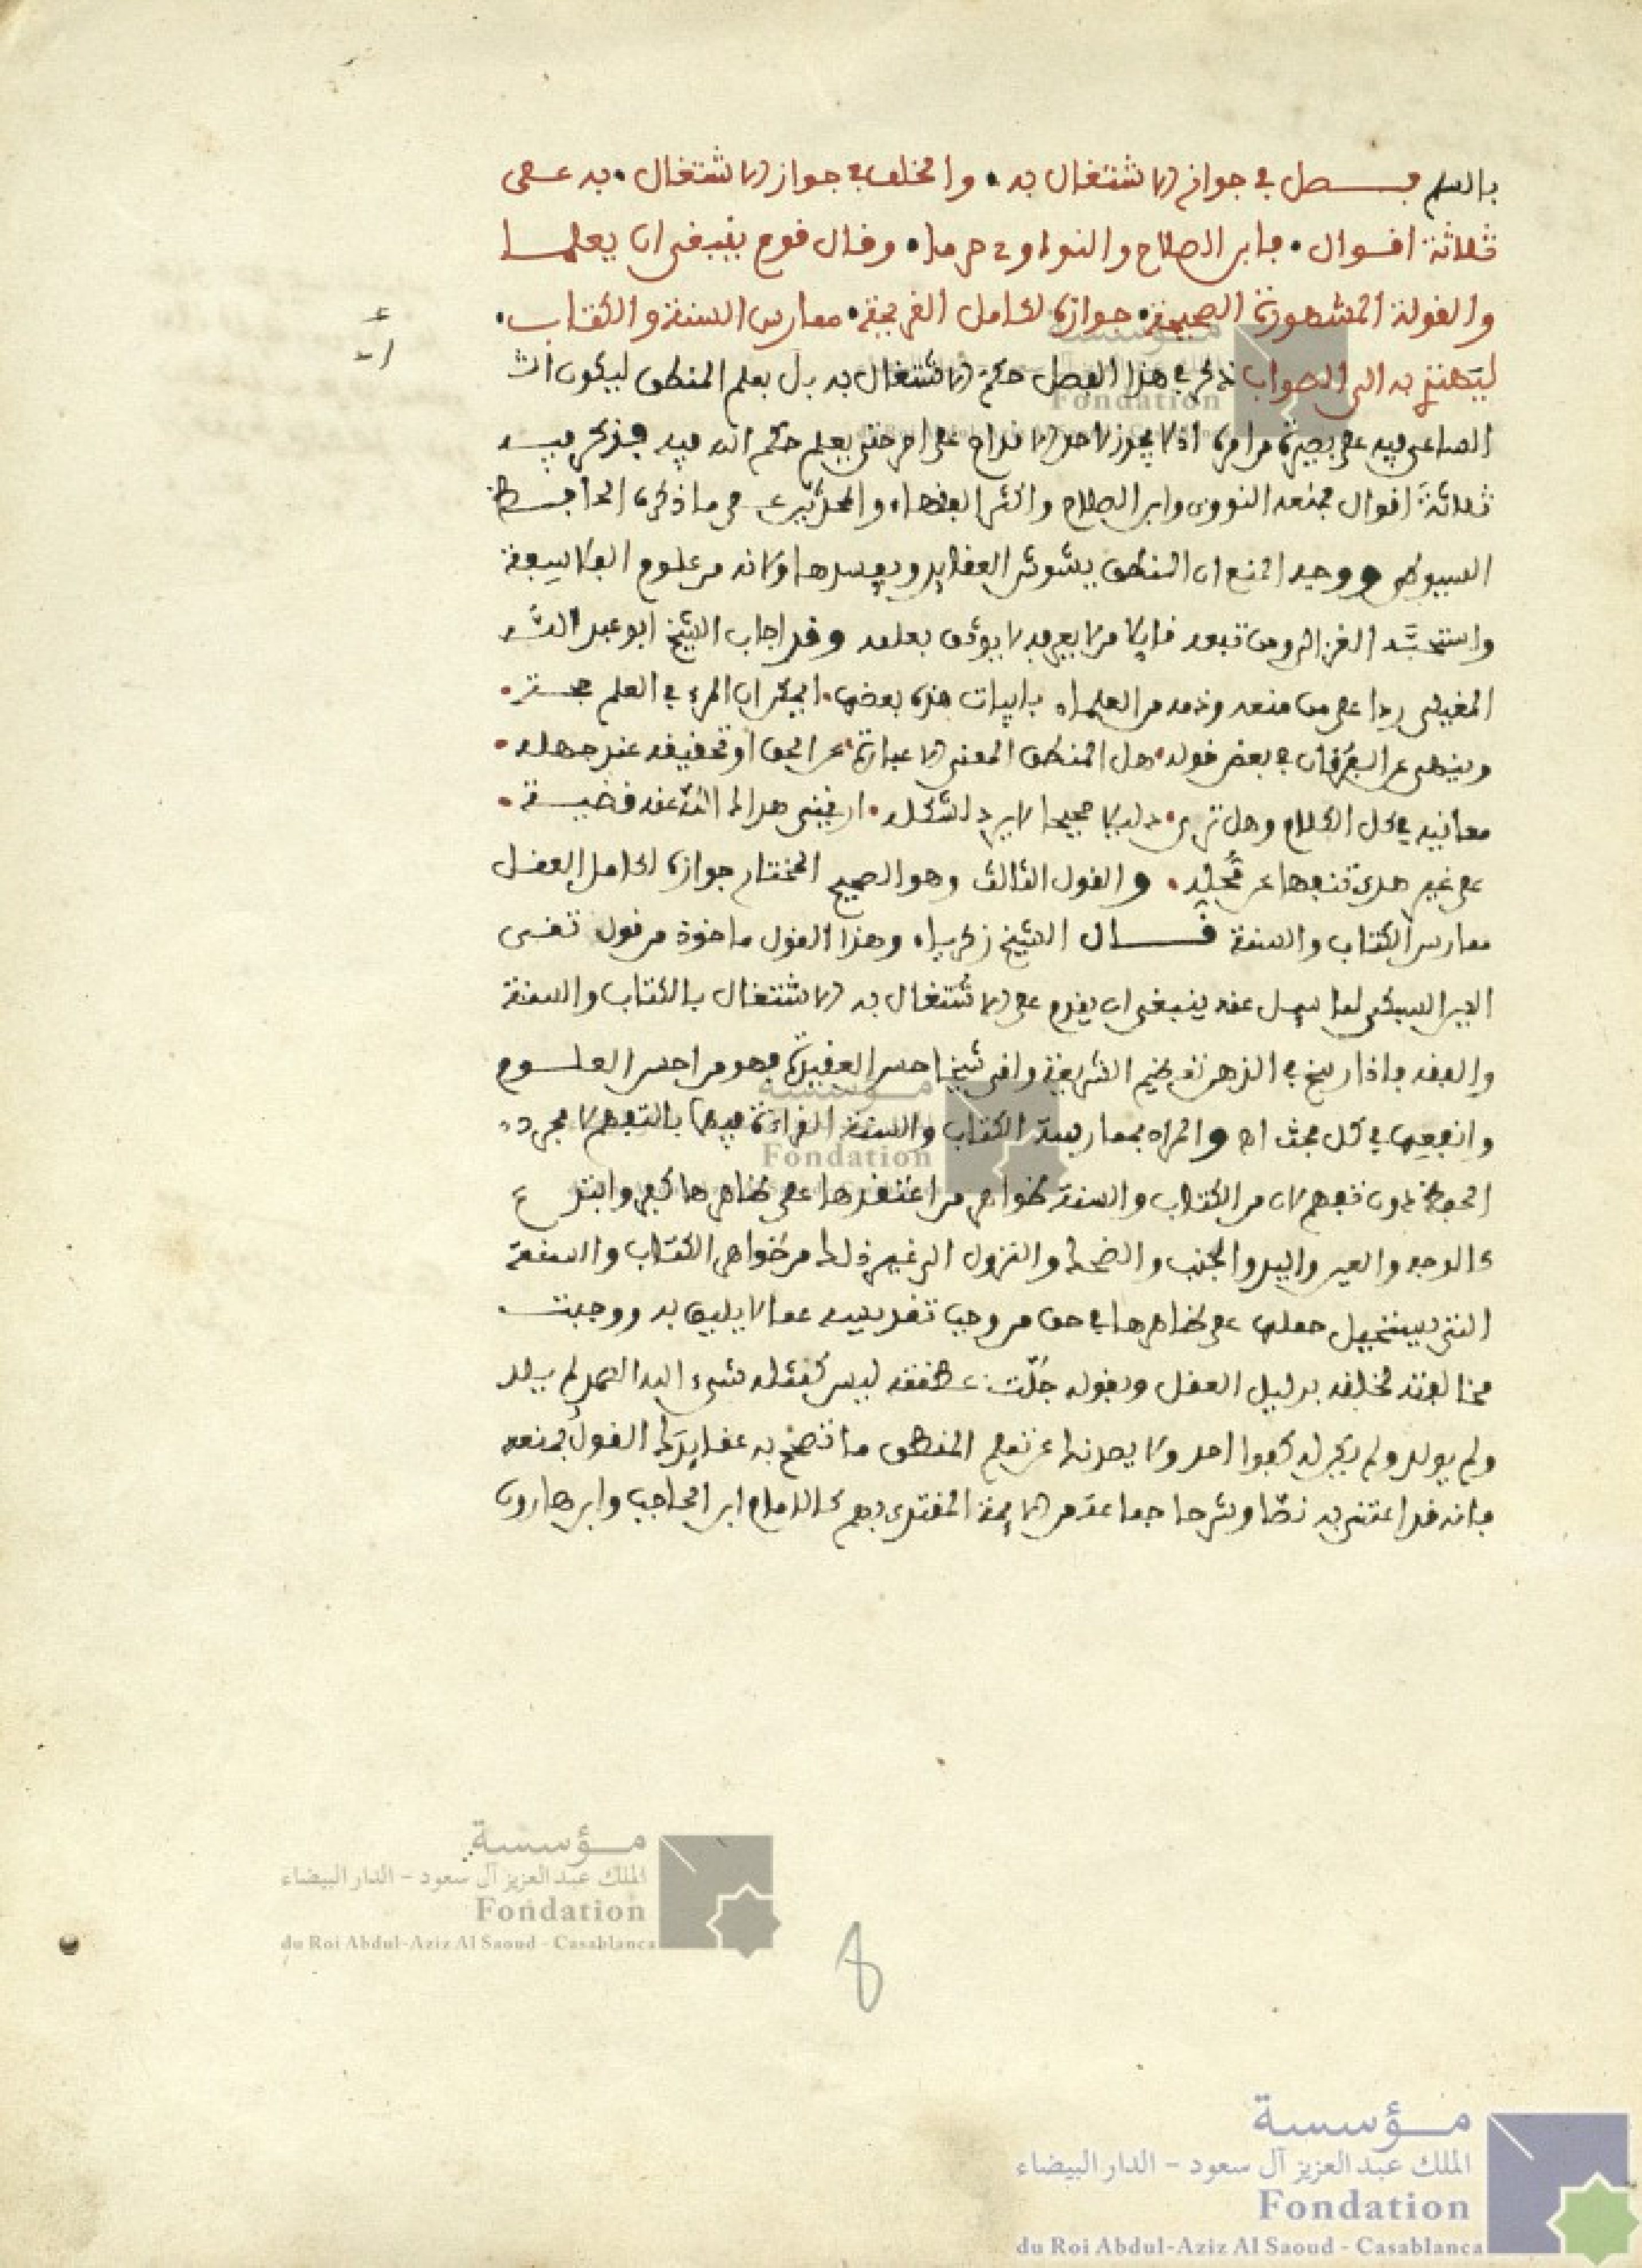 بالسلم فصل في جواز الاشتغال به • والخلف في جواز الاشتغال • به على
ثلاثة اقوال • فابن الصلاح والنواوي حرما • وقال قوم ينبغي ان يعلما
والقولة المشهورة الصحيحة • جوازه لكامل القريحة • ممارس السنة والكتاب •
ليهتدي به الى الصواب ذكر في هذا الفصل حكم الاشتغال به بل بعلم المنطق ليكون
الساعي فيه على بصيرة من امره اذ لا يجوز لاحد الاقدام على امر حتى يعلم حكم الله فيه فذكر فيه
ثلاثة اقوال فمنعه النووي وابن الصلاح واكثر الفقهاء والمحدثين على ما ذكره الحافظ
السيوطي ووجه المنع ان المنطق يشوش العقايد ويفسدها ولانه من علوم الفلاسفة
واستحبه الغزالي ومن تبعه قايلا من لا يعرفه لا يوثق بعلمه وقد اجاب الشيخ ابو عبد الله
المغيلي ردا على من منعه وذمه من العلماء بابيات هذه بعضها • ايمكن ان المرء في العلم حجة •
وينهى عن الفرقان في بعض قوله • هل المنطق المعني الا عبارة • عن الحق او تحقيقه عند جهله •
معانيه في كل الكلام وهل ترى • دليلا صحيحا لا يرد لشكله • اريني هداك الله عنه قضية •
على غير هذي تنفها عن محله • والقول الثالث وهو الصحيح المختار جوازه لكامل العقل
ممارس الكتاب والسنة قال الشيخ زكرياء وهذا القول ماخوذ من قول تقي
الدين السبكي لما سيل عنه ينبغي ان يقدم على الاشتغال به الاشتغال بالكتاب والسنة
والفقه فاذا رسخ في الذهن تعظيم الشريعة ولقي شيخا حسن العقيدة فهو من احسن العلوم
وانفعها في كل بحث اه والمراد بممارسة الكتاب والسنة القراءة فيهما بالتفهم لا مجرد
الحفظ دون تفهم لان من الكتاب والسنة ظواهر من اعتقدها على ظاهرها كفر وابتدع
كالوجه والعين واليد والجنب والضحك والنزول الى غير ذلك من ظواهر الكتاب والسنة
التي يستحيل حملها على ظاهرها في حق من وجب تقديسه عما لا يليق به ووجبت
مخالفته لخلقه بدليل العقل وبقوله جلت عظمته ليس كمثله شيء الله الصمد لم يلد
ولم يولد ولم يكن له كفوا احد ولا يصدنك عن تعلم المنطق ما تصح به عقايدك القول بمنعه
فانه قد اعتنى به نظما وشرحا جماعة من الايمة المقتدى بهم كالامام ابن الحاجب وابن هارون
8
مؤسسة
الملك عبد العزيز آل سعود - الدار البيضاء
Fondation
du Roi Abdul-Aziz Al Saoud - Casablanca
مؤسسة
الملك عبد العزيز آل سعود - الدار البيضاء
Fondation
du Roi Abdul-Aziz Al Saoud - Casablanca